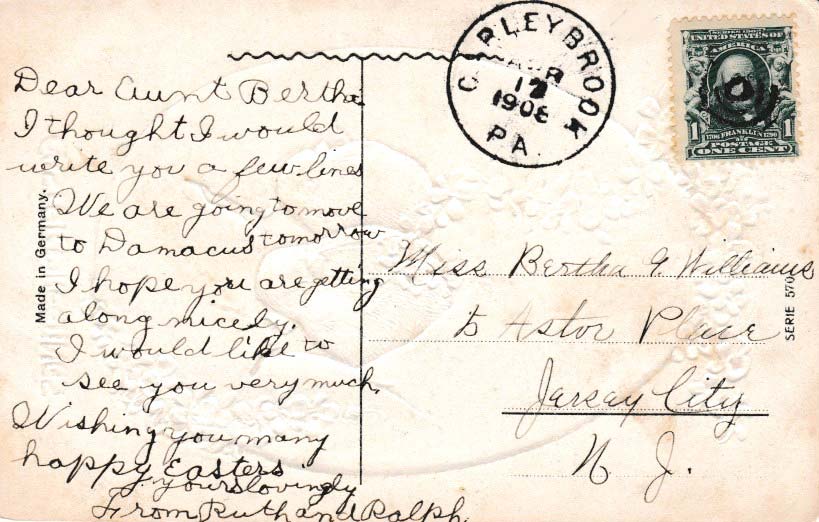 Dear Aunt Bertha
I thought I would
write you a few lines
We are going to move
to Damacus tomorrow
I hope you are getting
along nicely.
I would like to
see you very much.
Wishing you many
happy Easters
yours lovingly
From Ruth and Ralph
Made in Germany.
CARLEYBROOK
APR
17
1908
PA.
SERIES 1902
UNITED STATES OF
AMERICA
1706 FRANKLIN 1790
1 1
POSTAGE
ONE CENT
Miss Bertha Williams
5 Astor Place
Jarsay City
N J.
SERIE